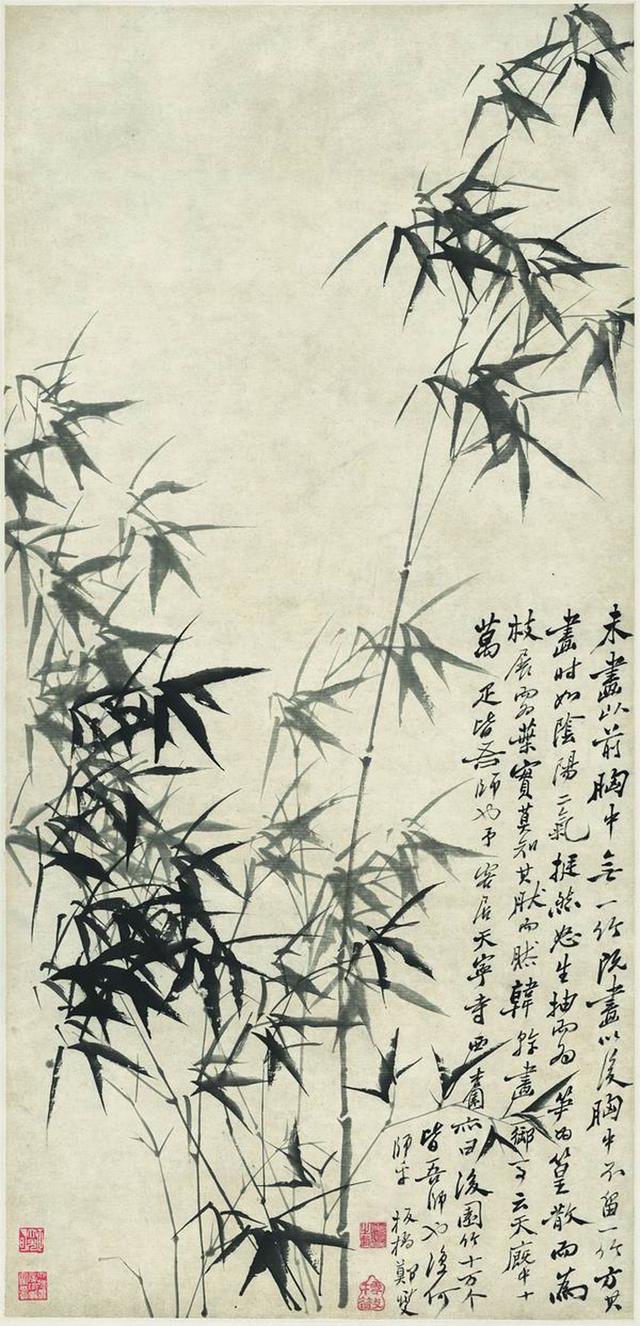 未畫以前胸中無一竹既畫以後胸中不留一竹方其
畫時如陰陽二氣挺然怒生抽而為筍為篁散而為
枝展而為葉實莫知其然而然韓幹畫御馬云天廄中十
萬疋皆吾師也予客居天寧寺西杏園亦曰後園竹十万个
皆吾師也復何
師乎板橋鄭燮